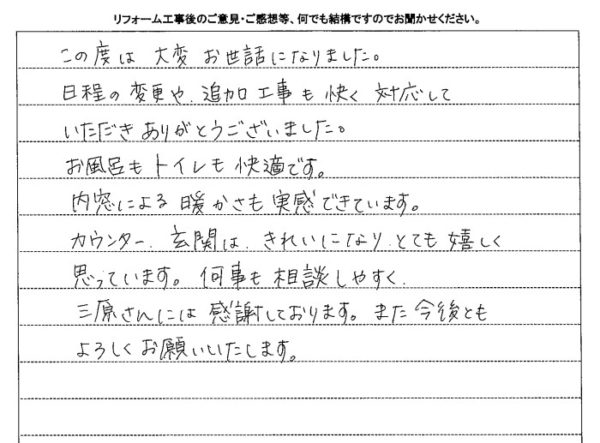 リフォーム工事後のご意見・ご感想等、何でも結構ですのでお聞かせください。
この度は 大変 お世話になりました。
日程の変更や、追加工事も快く対応して
いただきありがとうございました。
お風呂もトイレも快適です。
内窓による暖かさも実感できています。
カウンター、玄関は、きれいになり、とても嬉しく
思っています。何事も相談しやすく、
三原さんには感謝しております。また今後とも
よろしくお願いいたします。